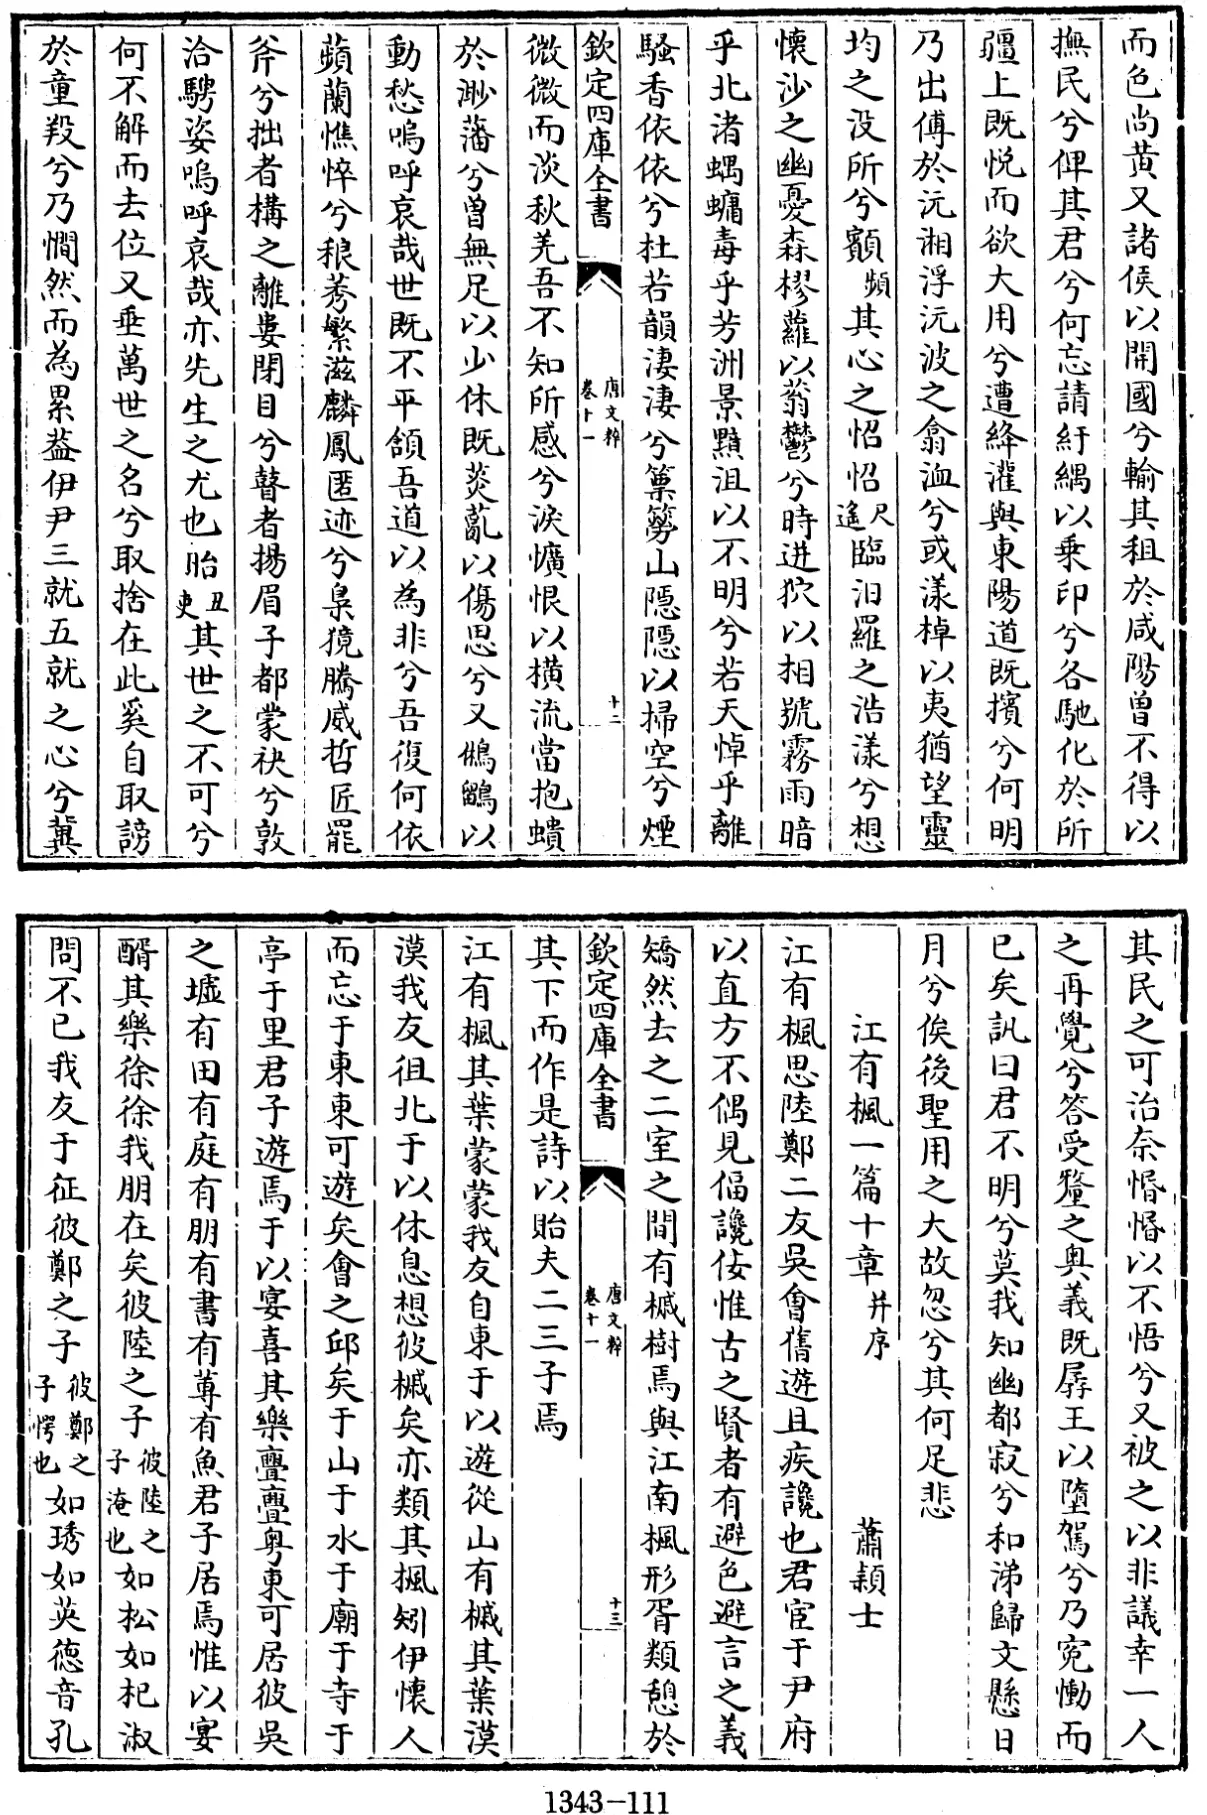 而色尚黄又諸侯以開國兮輸其租於咸陽曾不得以
撫民兮俾其君兮何忘請紆綢以乗印兮各馳化於所
疆上既悦而欲大用兮遭絳灌與東陽道既擯兮何明
乃出傅於沅湘浮沅波之翕洫兮或漾棹以夷猶望靈
均之没所兮顰頻其心之怊怊尺遙臨汨羅之浩漾兮想
懷沙之幽憂森樛蘿以蓊鬱兮時迸狖以相號霧雨暗
乎北渚蜩蟰毒乎芳洲景黯沮以不明兮若天悼乎離
騷香依依兮杜若韻淒淒兮篥篣山隱隱以掃空兮煙
欽定四庫全書 唐文粹 卷十一 十二
微微而淡秋羌吾不知所感兮淚懭恨以橫流當抱螮
於渺藩兮曽無足以少休既菼薍以傷思兮又鵂鶹以
動愁嗚呼哀哉世既不平頷吾道以為非兮吾復何依
蘋蘭憔悴兮稂莠繁滋麟鳳匿迹兮梟獍騰威哲匠罷
斧兮拙者構之離婁閉目兮瞽者揚眉子都蒙袂兮敦
洽騁姿嗚呼哀哉亦先生之尤也眙丑吏其世之不可兮
何不解而去位又垂萬世之名兮取捨在此奚自取謗
於童羖兮乃憪然而為累葢伊尹三就五就之心兮冀
其民之可治奈惛惛以不悟兮又被之以非議幸一人
之再覺兮答受釐之奥義既孱王以墮駕兮乃寃慟而
已矣訊曰君不明兮莫我知幽都寂兮和涕歸文懸日
月兮俟後聖用之大故忽兮其何足悲
江有楓一篇十章并序 蕭穎士
江有楓思陸鄭二友吳會舊遊且疾讒也君宦于尹府
以直方不偶見偪讒佞惟古之賢者有避色避言之義
矯然去之二室之間有槭樹焉與江南楓形胥類憩於
欽定四庫全書 唐文粹 卷十一 十三
其下而作是詩以貽夫二三子焉
江有楓其葉蒙蒙我友自東于以遊從山有槭其葉漠
漠我友徂北于以休息想彼槭矣亦類其楓矧伊懷人
而忘于東東可遊矣會之邱矣于山于水于廟于寺于
亭于里君子遊焉于以宴喜其樂亹亹粤東可居彼吳
之墟有田有庭有朋有書有尊有魚君子居焉惟以宴
醑其樂徐徐我朋在矣彼陸之子彼陸之子淹也如松如杞淑
問不已我友于征彼鄭之子彼鄭之子愕也如琇如英德音孔
1343-111